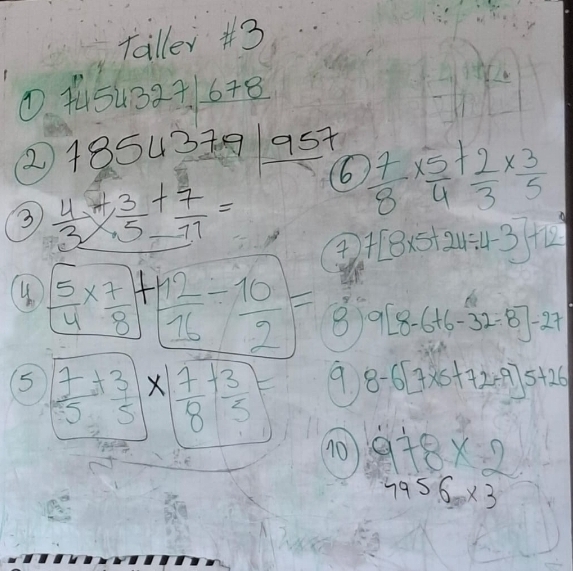 Taller #3
① 7454327 | 678
② 7854379 | 957
③ 4/3 + 3/5 + 7/11 =
④ 5/4 × 7/8 + 12/16 ÷ 10/2 =
⑤ 7/5 + 3/5 × 7/8 + 3/5 =
⑥ 7/8 × 5/4 + 2/3 × 3/5
⑦ 7[8×5+24÷4-3]+12
⑧ 9[8-6+6-32÷8]-27
⑨ 8-6[7×5+72÷9]5+26
⑩ 978 × 2
1956 × 3